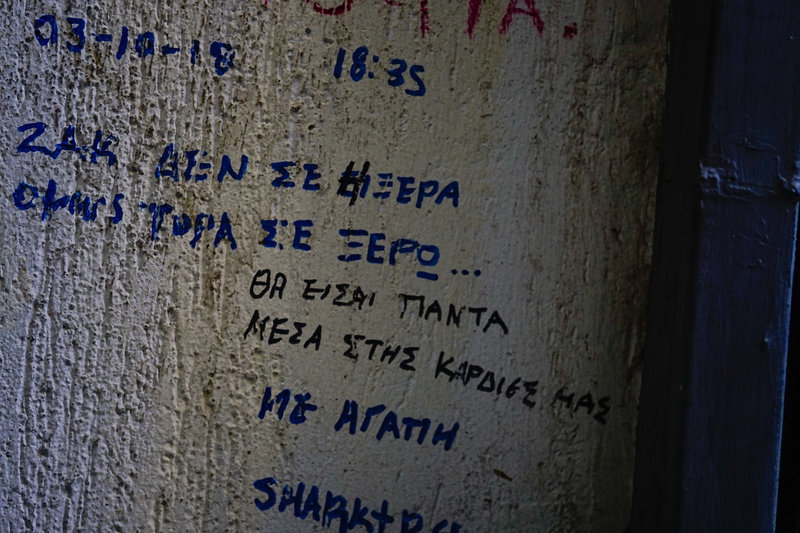 03-10-18 18:35
ΖΑΚ ΔΕΝ ΣΕ ΗΞΕΡΑ
ΟΜΩS ΤΩΡΑ ΣΕ ΞΕΡΩ...
ΘΑ ΕΙΣΑΙ ΠΑΝΤΑ
ΜΕΣΑ ΣΤΗΣ ΚΑΡΔΙΕΣ ΜΑΣ
ΜΕ ΑΓΑΠΗ